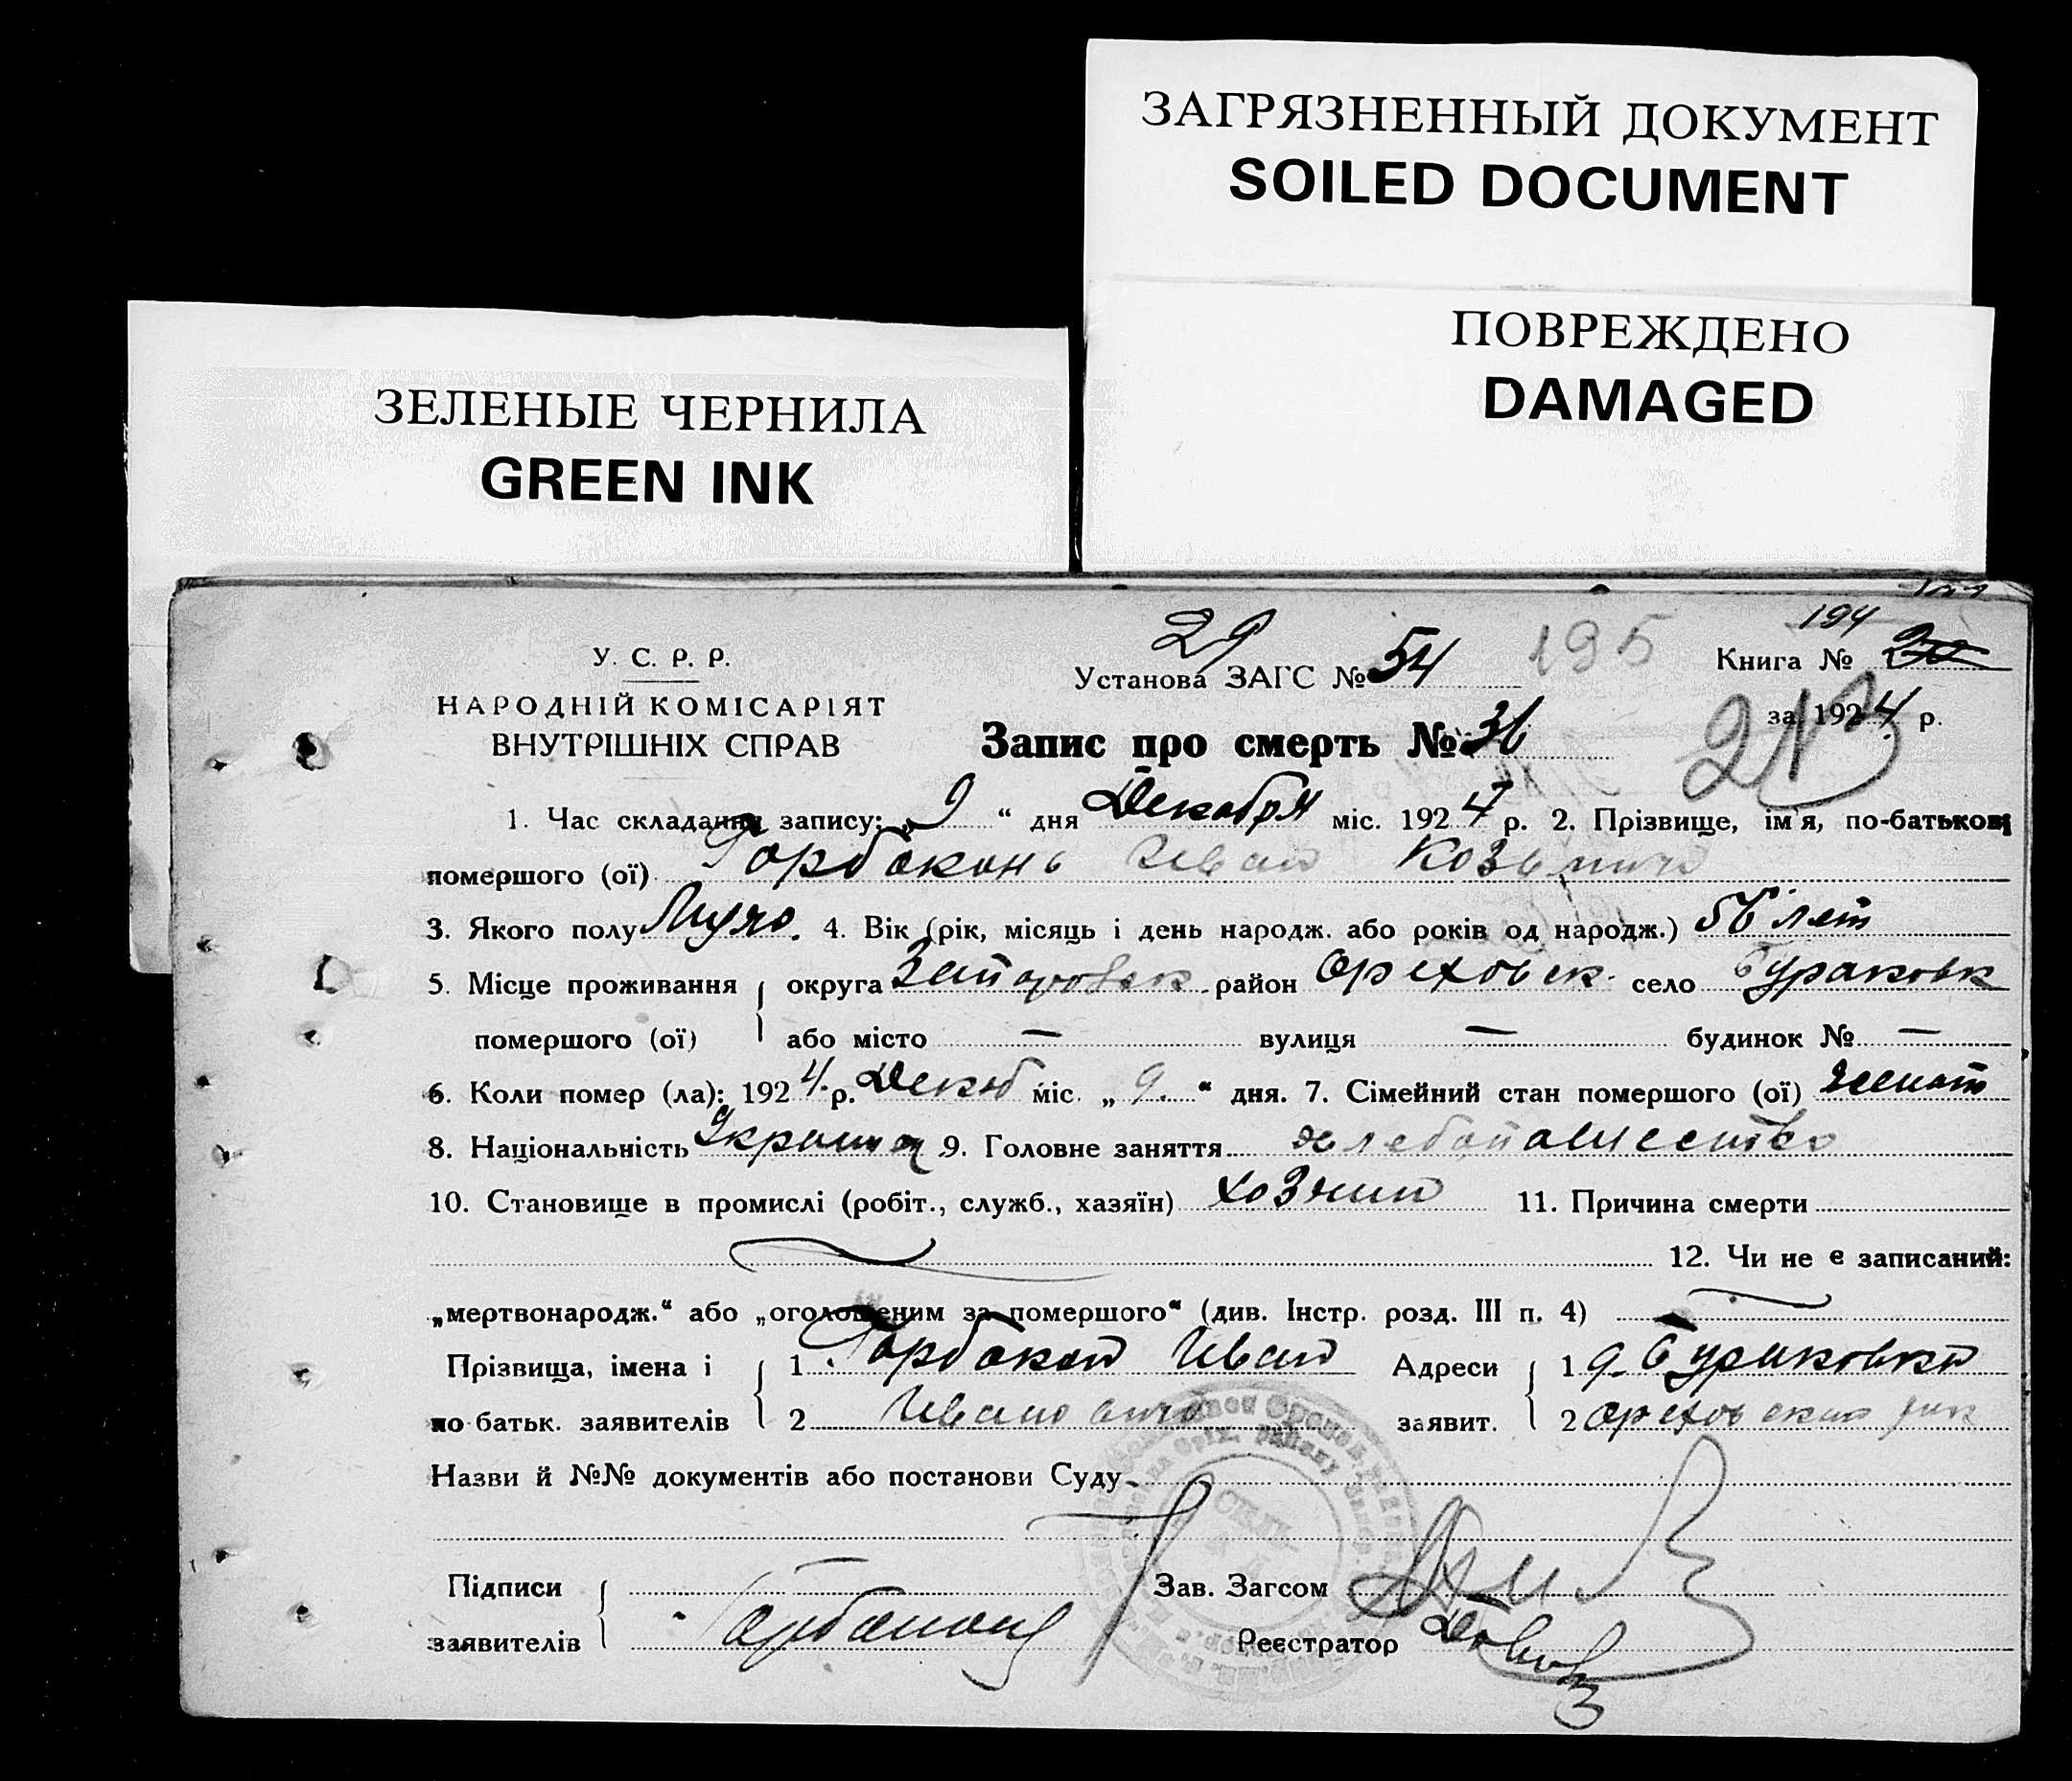 ЗАГРЯЗНЕННЫЙ ДОКУМЕНТ
SOILED DOCUMENT
ПОВРЕЖДЕНО
DAMAGED
ЗЕЛЕНЫЕ ЧЕРНИЛА
GREEN INK
194
У. С. Р. Р.
НАРОДНІЙ КОМІСАРІЯТ
ВНУТРІШНІХ СПРАВ
29
Установа ЗАГС № 54 195
Книга № 20
за 1924 р.
Запис про смерть № 36
1. Час складання запису: „9“ дня Декабря міс. 1924 р. 2. Прізвище, ім'я, по-батькові
помершого (ої) Горбоконь Иван Козьмич
3. Якого полу Мужс. 4. Вік (рік, місяць і день народж. або років од народж.) 56 лет
5. Місце проживання округа Запорожск район Ореховск. село Бураковк
помершого (ої) або місто — вулиця — будинок № —
6. Коли помер (ла): 1924 р. Декаб міс. „9.“ дня. 7. Сімейний стан помершого (ої) женат
8. Національність Украин 9. Головне заняття хлебопашество
10. Становище в промислі (робіт., служб., хазяїн) хозяин 11. Причина смерти
12. Чи не є записаний:
„мертвонародж.“ або „оголошеним за помершого“ (див. Інстр. розд. III п. 4)
Прізвища, імена і 1 Горбокон Иван Адреси 1 д. Бураковка
по батьк. заявителів 2 Иванович заявит. 2 Ореховским рик
Назви й №№ документів або постанови Суду
Підписи Зав. Загсом
заявителів Горбоконь Реєстратор